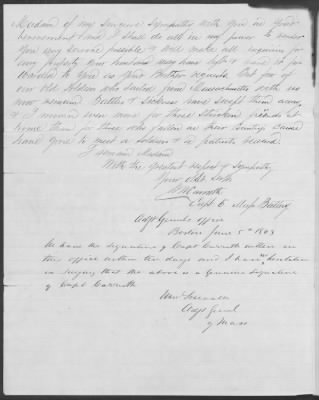 Madam of my sincere sympathy with you in your
bereavement and I shall do all in my power to render
you any service possible & will make all inquiries for
any property your husband may have left & send it for
to you as your Brother requests. But few of
our old soldiers who sailed from Massachusetts with us
now remain. Battles & sickness have swept them away,
& I mourn even more for those stricken friends at
home than for those who fallen in their country's cause
have gone to meet a soldier's & a patriot's reward.
I remain Madam
With the greatest respect & sympathy
Your Obt Servt
W W Carruth
Capt 6 Mass Battery
Adjt Genls Office
Boston June 5th 1863
We have the signature of Capt Carruth written in
this office within ten days and I have no hesitation
in saying that the above is a genuine signature
of Capt Carruth
Wm Schouler
Adjt Genl
of Mass